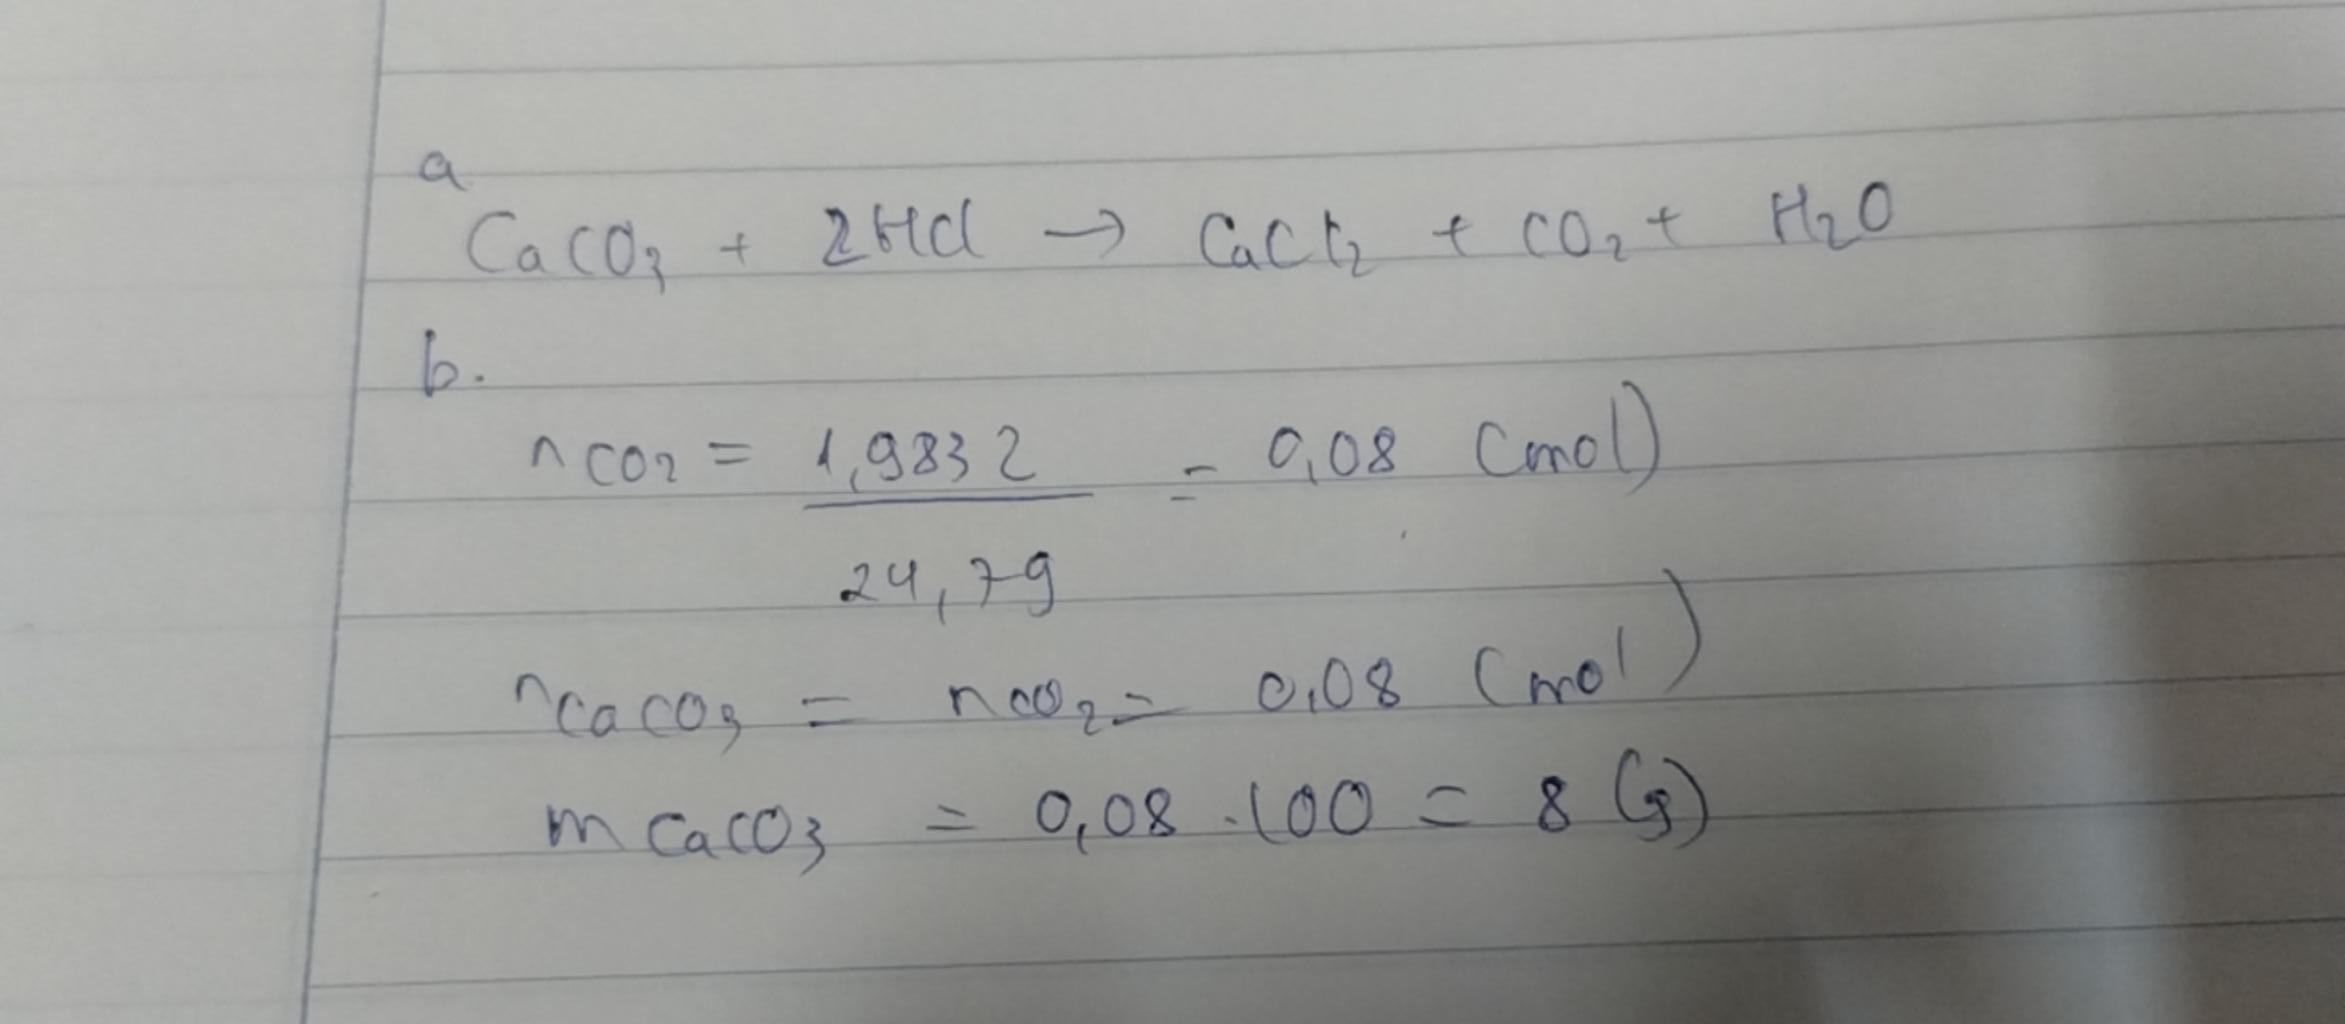 a
CaCO3 + 2HCl → CaCl2 + CO2 + H2O
b.
nCO2 = 1,9832 = 0,08 (mol)
24,79
nCaCO3 = nCO2 = 0,08 (mol)
mCaCO3 = 0,08 . 100 = 8 (g)